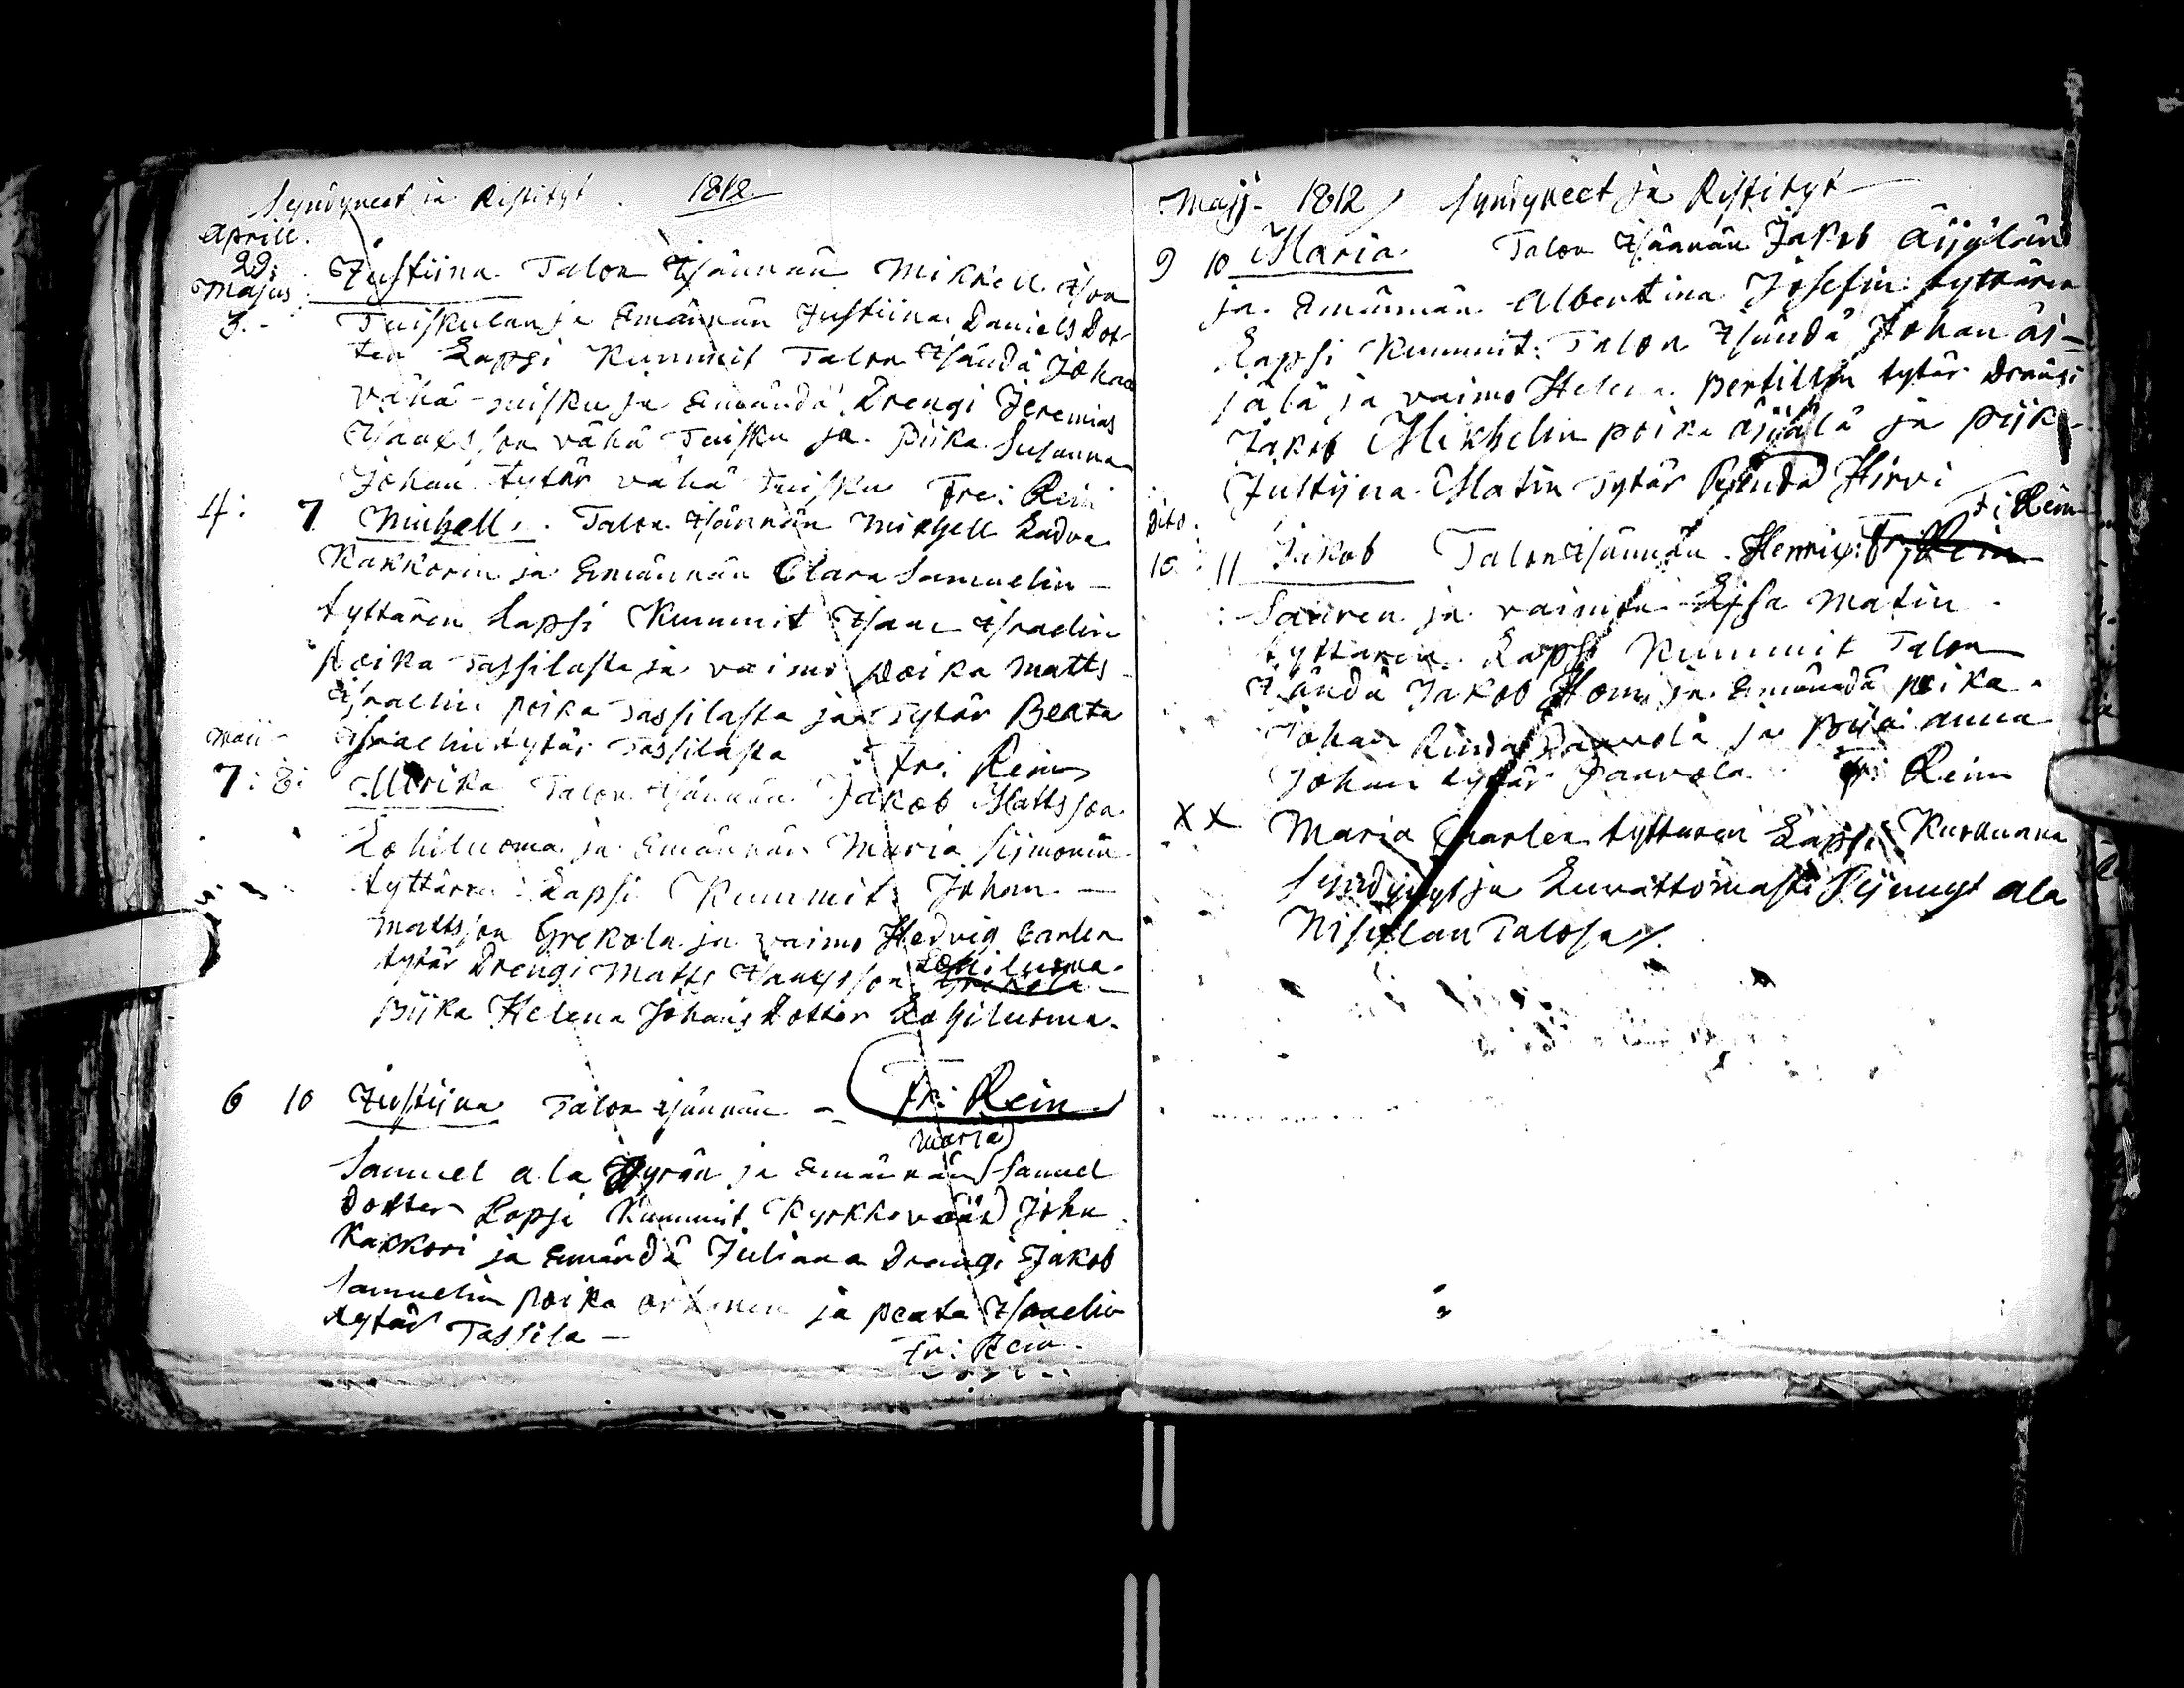 Syndyneet ja Ristityt . 1812
Aprill.
29: Justiina Talon Isännän Mikkell Ison
Majus
3. - Tuiskulan ja Emännän Justiina Daniels Dot-
ter Lapsi Kummit Talon Isändä Johan
vähä-tuisku ja Emändä Drengi Jeremias
Isaaksson vähä Tuisku ja Piika Susanna
Johan tytär vähä Tuisku Fre: Rein
4: 7 Michell. Talon Isännän Mickell Ladva
Kakkorin ja Emännän Clara Samuelin-
tyttären Lapsi Kummit Isaac Israelin
poika Tassilasta ja vaimo poika Matts
Israelin poika Tassilasta ja Tytär Beata
Israelin tytär Tassilasta Fre: Rein
Maii-
7: 8: Ulrika Talon Isännän Jakob Mattsson
Lohiluoma ja Emännän Maria Sijmonin
tyttären Lapsi Kummit Johan -
Mattsson Grekola ja vaimo Hedvig Carlen
tytär Drengi Matts Isaacsson Lohiluoma Grekola
Piika Helena Johans Dotter Lohiluoma.
Fr: Rein
6 10 Justijna Talon Isännän -
Maria
Samuel ala Hyrön ja Emännän Samuel
Dotter Lapsi Kummit Kyrkkovääri John
Kakkori ja Emändä Juliana Drengi Jakob
Samuelin poika ja Peata Israelin
tytär Tassila - Fr: Rein.
Majj- 1812 Syndyneet ja Ristityt
9 10 Maria Talon Isännän Jakob Äijälän
ja Emännän Albertina Josefin tyttären
Lapsi Kummit: Talon Isändä Johan äi-
jälä ja vaimo Helena Pertillin tytär Drängi
Jakob Mikhelin poika Äijälä ja piik-
Justijna Matin Tytär Rinda Hirvi
F: Rein
Dito.
10: 11 Jakob Talon Isännän Henrix: Fr: Rein
Sauren ja vaimon Lisa Matin
tyttären Lapsi Kummit Talon
Isändä Jakob Homi ja Emändä poika
Johan Rinda Paavola ja Piia Anna
Johan tytär Paavola Fr: Rein
X X Maria Carlen tyttären Lapsi Kuoluana
Syndynyt ja Luvattomasti Sijnnyt ala
Nisulan Talosa